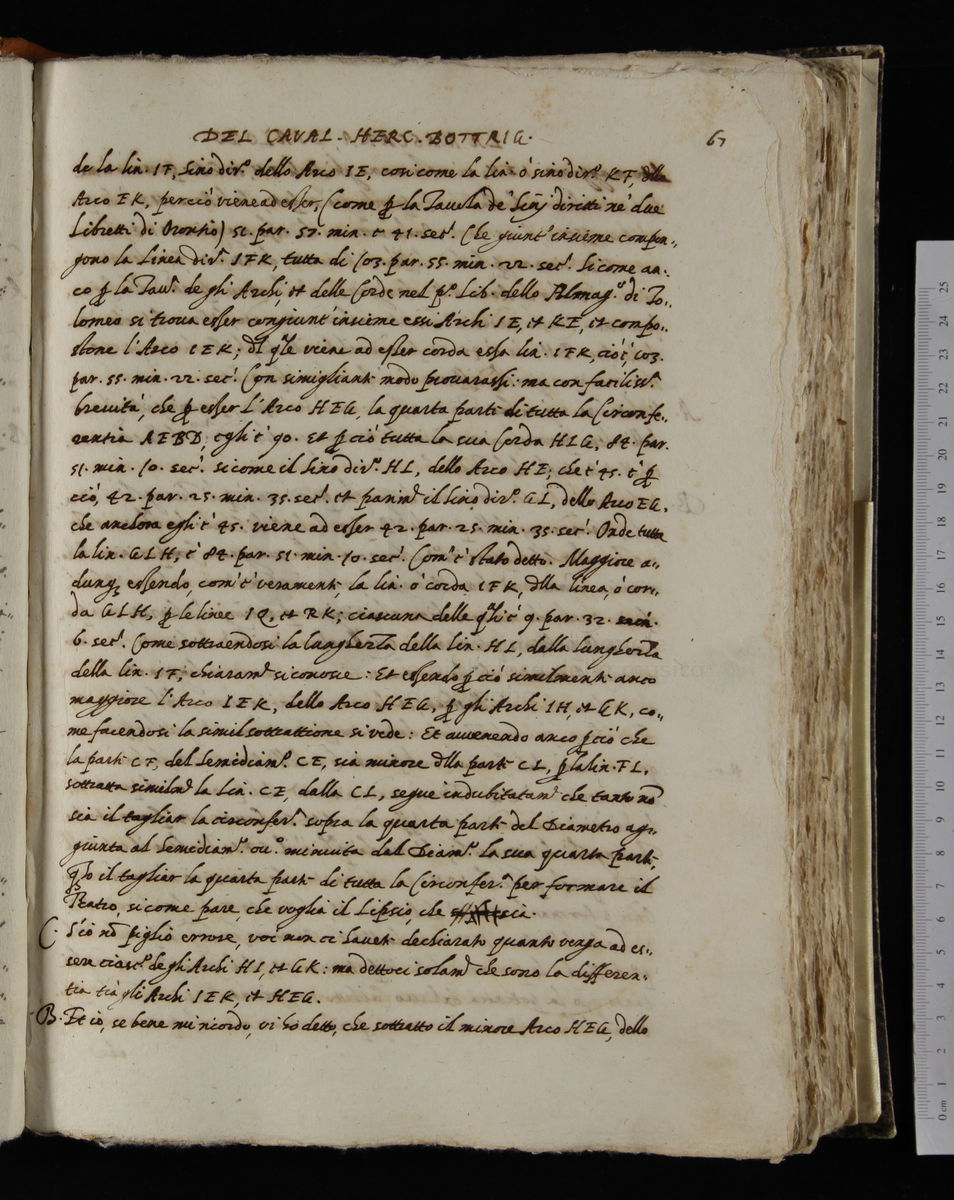 DEL CAVAL. HERC. BOTTRIG. 67
de la lin. IF, sino dir.º dello Arco IE, cosi come la lin. ò sino dir.º KF, dllo
Arco EK, perciò viene ad esser, (come ꝑ la Tavola de' Sinj diritti ne' due
Libretti di Orontio) 51. par. 57. min. e 41. sec.¹ Che giunt' insieme compon,,
gono la Linea dir.ª IFK, tutta di 103. par. 55. min. 22. sec.¹ Si come an,,
co ꝑ la Tav.ª de gli Archi, et delle Corde nel pº. Lib. dello Almag.º di To,,
lomeo si trova esser congiunt' insieme essi Archi IE, et KE, et compo,,
stone l'Arco IEK; dl qle viene ad esser corda essa lin. IFK, cioè, 103.
par. 55. min. 22. sec.¹ Con simigliant. modo provarassi: ma con faciliss.ª
brevità, che ꝑ esser l'Arco HEG, la quarta parte di tutta la Circonfe,,
rentia AEBD; egli è 90. Et ꝑ ciò tutta la sua Corda HLG, 84. par.
51. min. 10. sec.¹ si come il sino dir.º HL, dello Arco HE; che è 45. è ꝑ
ciò, 42. par. 25. min. 35. sec.¹ et parim.te il sino dir.º GL, dello Arco EG,
che anchora egli è 45. viene ad esser 42. par. 25. min. 35. sec.¹ Onde tutta
la lin. GLH, è 84. par. 51. min. 10. sec.¹ Com' è stato detto. Maggiore a,,
dunq; essendo, com' è verament., la lin. ò corda IFK, dlla linea, ò cor,,
da GLH, ꝑ le linee IQ, et RK; ciascuna delle qli è 9. par. 32. min.
6. sec.¹ Come sottraendosi la lungheZZa della lin. HL, dalla lungheZZa
della lin. IF, chiaram.te si conosce: Et essendo ꝑ ciò similmente anco
maggiore l'Arco IEK, dello Arco HEG, ꝑ gli Archi IH, et GK, co,,
me facendosi la simil sottrattione si vede: Et avvenendo anco ꝑ ciò che
la parte CF, del Semidiam.º CE, sia minore dlla parte CL, ꝑ la lin. FL,
sottratta similm.te la lin. CF, dalla CL, segue indubitatam.te che tanto nō
sia il tagliar la circonfer.ª sopra la quarta parte del Diametro ag,,
giunta al Semidiam.º ov.º minuita dal Diam.º la sua quarta parte,
qto il tagliar la quarta parte di tutta la Circonfer.ª per formare il
Teatro, si come pare, che voglia il Lipsio, che sia.
C. S'io nō piglio errore, voi non ci havete dechiarato quanto venga ad es,,
sere ciasc.º de gli Archi HI, et GK: ma dettoci solam.te che sono la differen,,
tia trà gli Archi IEK, et HEG.
B. Et io, se bene mi ricordo, vi hò detto, che sottratto il minore Arco HEG, dello